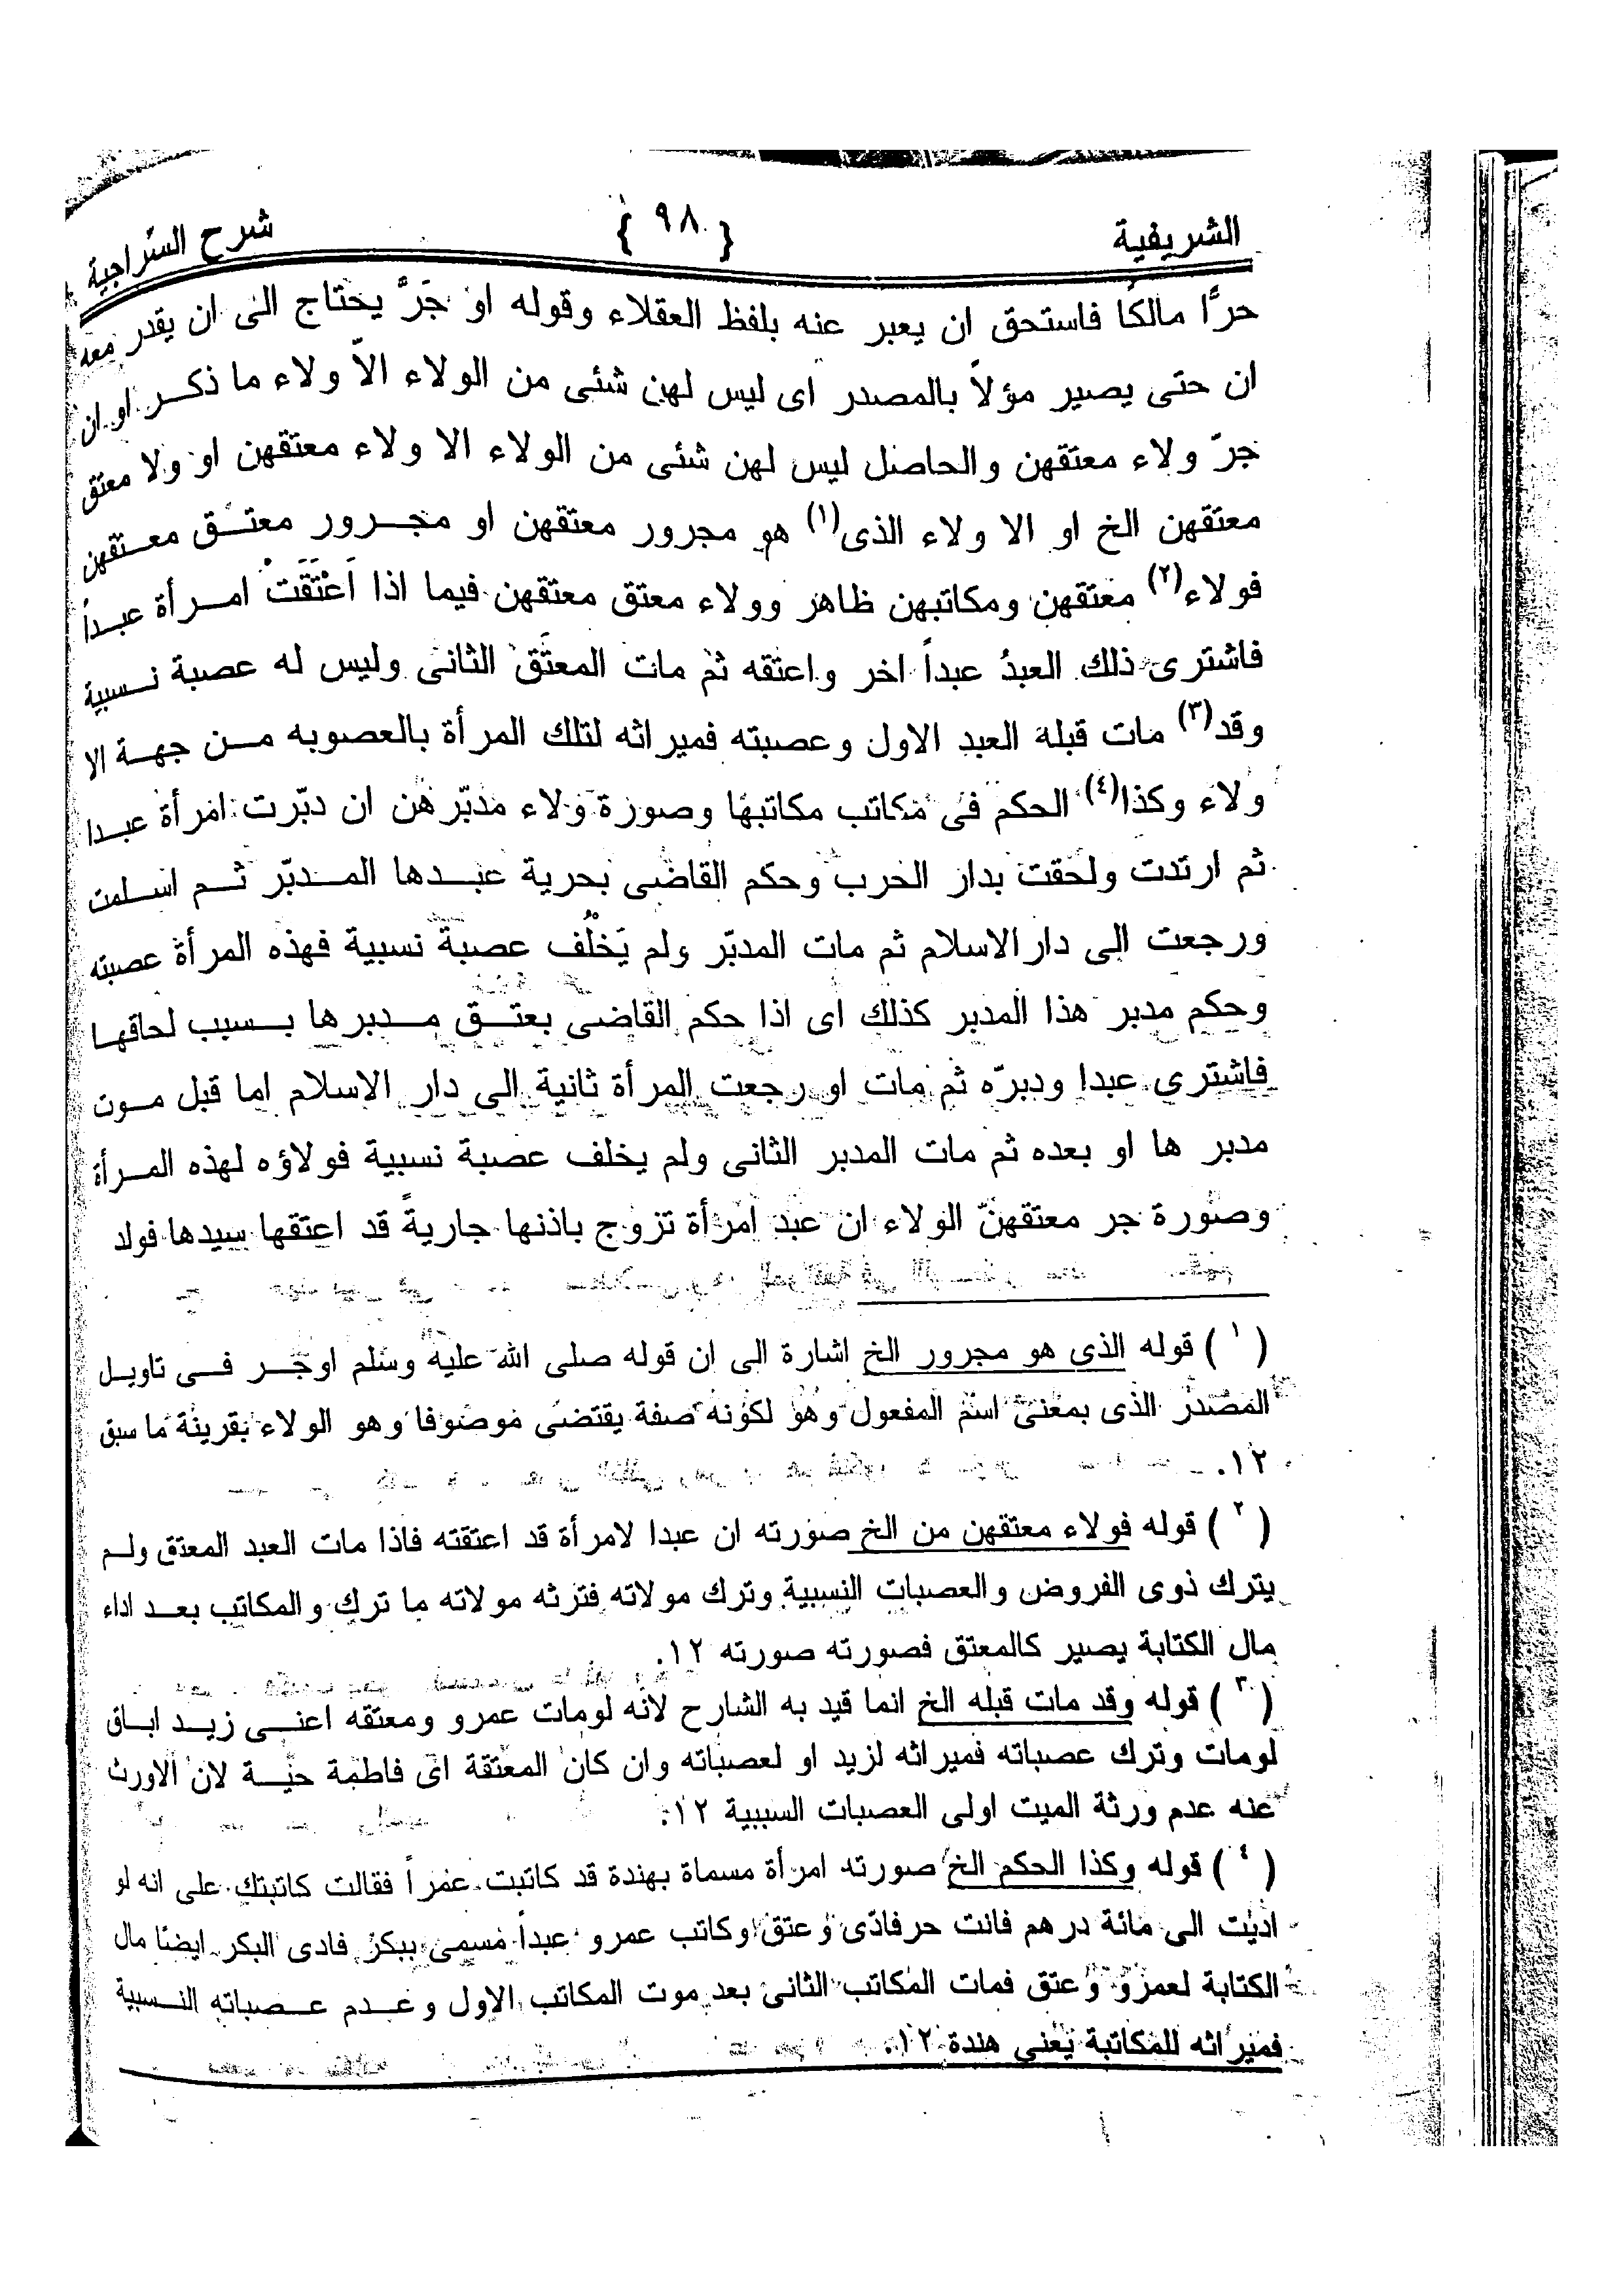 الشريفية { ٩٨ } شرح السّراجية
حرًّا مالكًا فاستحق ان يعبر عنه بلفظ العقلاء وقوله او جَرَّ يحتاج الى ان يقدر معه
ان حتى يصير مؤلاً بالمصدر اى ليس لهن شئى من الولاء الاّ ولاء ما ذكر او ان
جرّ ولاء معتقهن والحاصل ليس لهن شئى من الولاء الا ولاء معتقهن او ولا معتق
معتقهن الخ او الا ولاء الذى(١) هو مجرور معتقهن او مجرور معتق معتقهن
فولاء(٢) معتقهن ومكاتبهن ظاهر وولاء معتق معتقهن فيما اذا اَعْتَقَتْ امرأة عبداً
فاشترى ذلك العبدُ عبداً اخر واعتقه ثم مات المعتَق الثانى وليس له عصبة نسبية
وقد(٣) مات قبله العبد الاول وعصبته فميراثه لتلك المرأة بالعصوبه من جهة الا
ولاء وكذا(٤) الحكم فى مكاتب مكاتبها وصورة ولاء مدبّرهن ان دبّرت امرأة عبدا
ثم ارتدت ولحقت بدار الحرب وحكم القاضى بحرية عبدها المدبّر ثم اسلمت
ورجعت الى دار الاسلام ثم مات المدبّر ولم يَخْلُف عصبة نسبية فهذه المرأة عصبته
وحكم مدبر هذا المدبر كذلك اى اذا حكم القاضى بعتق مدبرها بسبب لحاقها
فاشترى عبدا ودبرّه ثم مات او رجعت المرأة ثانية الى دار الاسلام اما قبل موت
مدبر ها او بعده ثم مات المدبر الثانى ولم يخلف عصبة نسبية فولاؤه لهذه المرأة
وصورة جر معتقهنّ الولاء ان عبد امرأة تزوج باذنها جاريةً قد اعتقها سيدها فولد
(١) قوله الذى هو مجرور الخ اشارة الى ان قوله صلى الله عليه وسلم اوجر فى تاويل
المصدر الذى بمعنى اسم المفعول وهو لكونه صفة يقتضى موصوفا وهو الولاء بقرينة ما سبق
١٢.
(٢) قوله فولاء معتقهن من الخ صورته ان عبدا لامرأة قد اعتقته فاذا مات العبد المعتق ولم
يترك ذوى الفروض والعصبات النسبية وترك مولاته فترثه مولاته ما ترك والمكاتب بعد اداء
مال الكتابة يصير كالمعتق فصورته صورته ١٢.
(٣) قوله وقد مات قبله الخ انما قيد به الشارح لانه لومات عمرو ومعتقه اعنى زيد اباق
لومات وترك عصباته فميراثه لزيد او لعصباته وان كان المعتقة اى فاطمة حيّة لان الاورث
عنه عدم ورثة الميت اولى العصبات السببية ١٢.
(٤) قوله وكذا الحكم الخ صورته امرأة مسماة بهندة قد كاتبت عمراً فقالت كاتبتك على انه لو
اديت الى مائة درهم فانت حرفادّى وعتق وكاتب عمرو عبداً مسمى ببكر فادى البكر ايضًا مال
الكتابة لعمرو وعتق فمات المكاتب الثانى بعد موت المكاتب الاول وعدم عصباته النسبية
فميراثه للمكاتبة يعنى هندة ١٢.